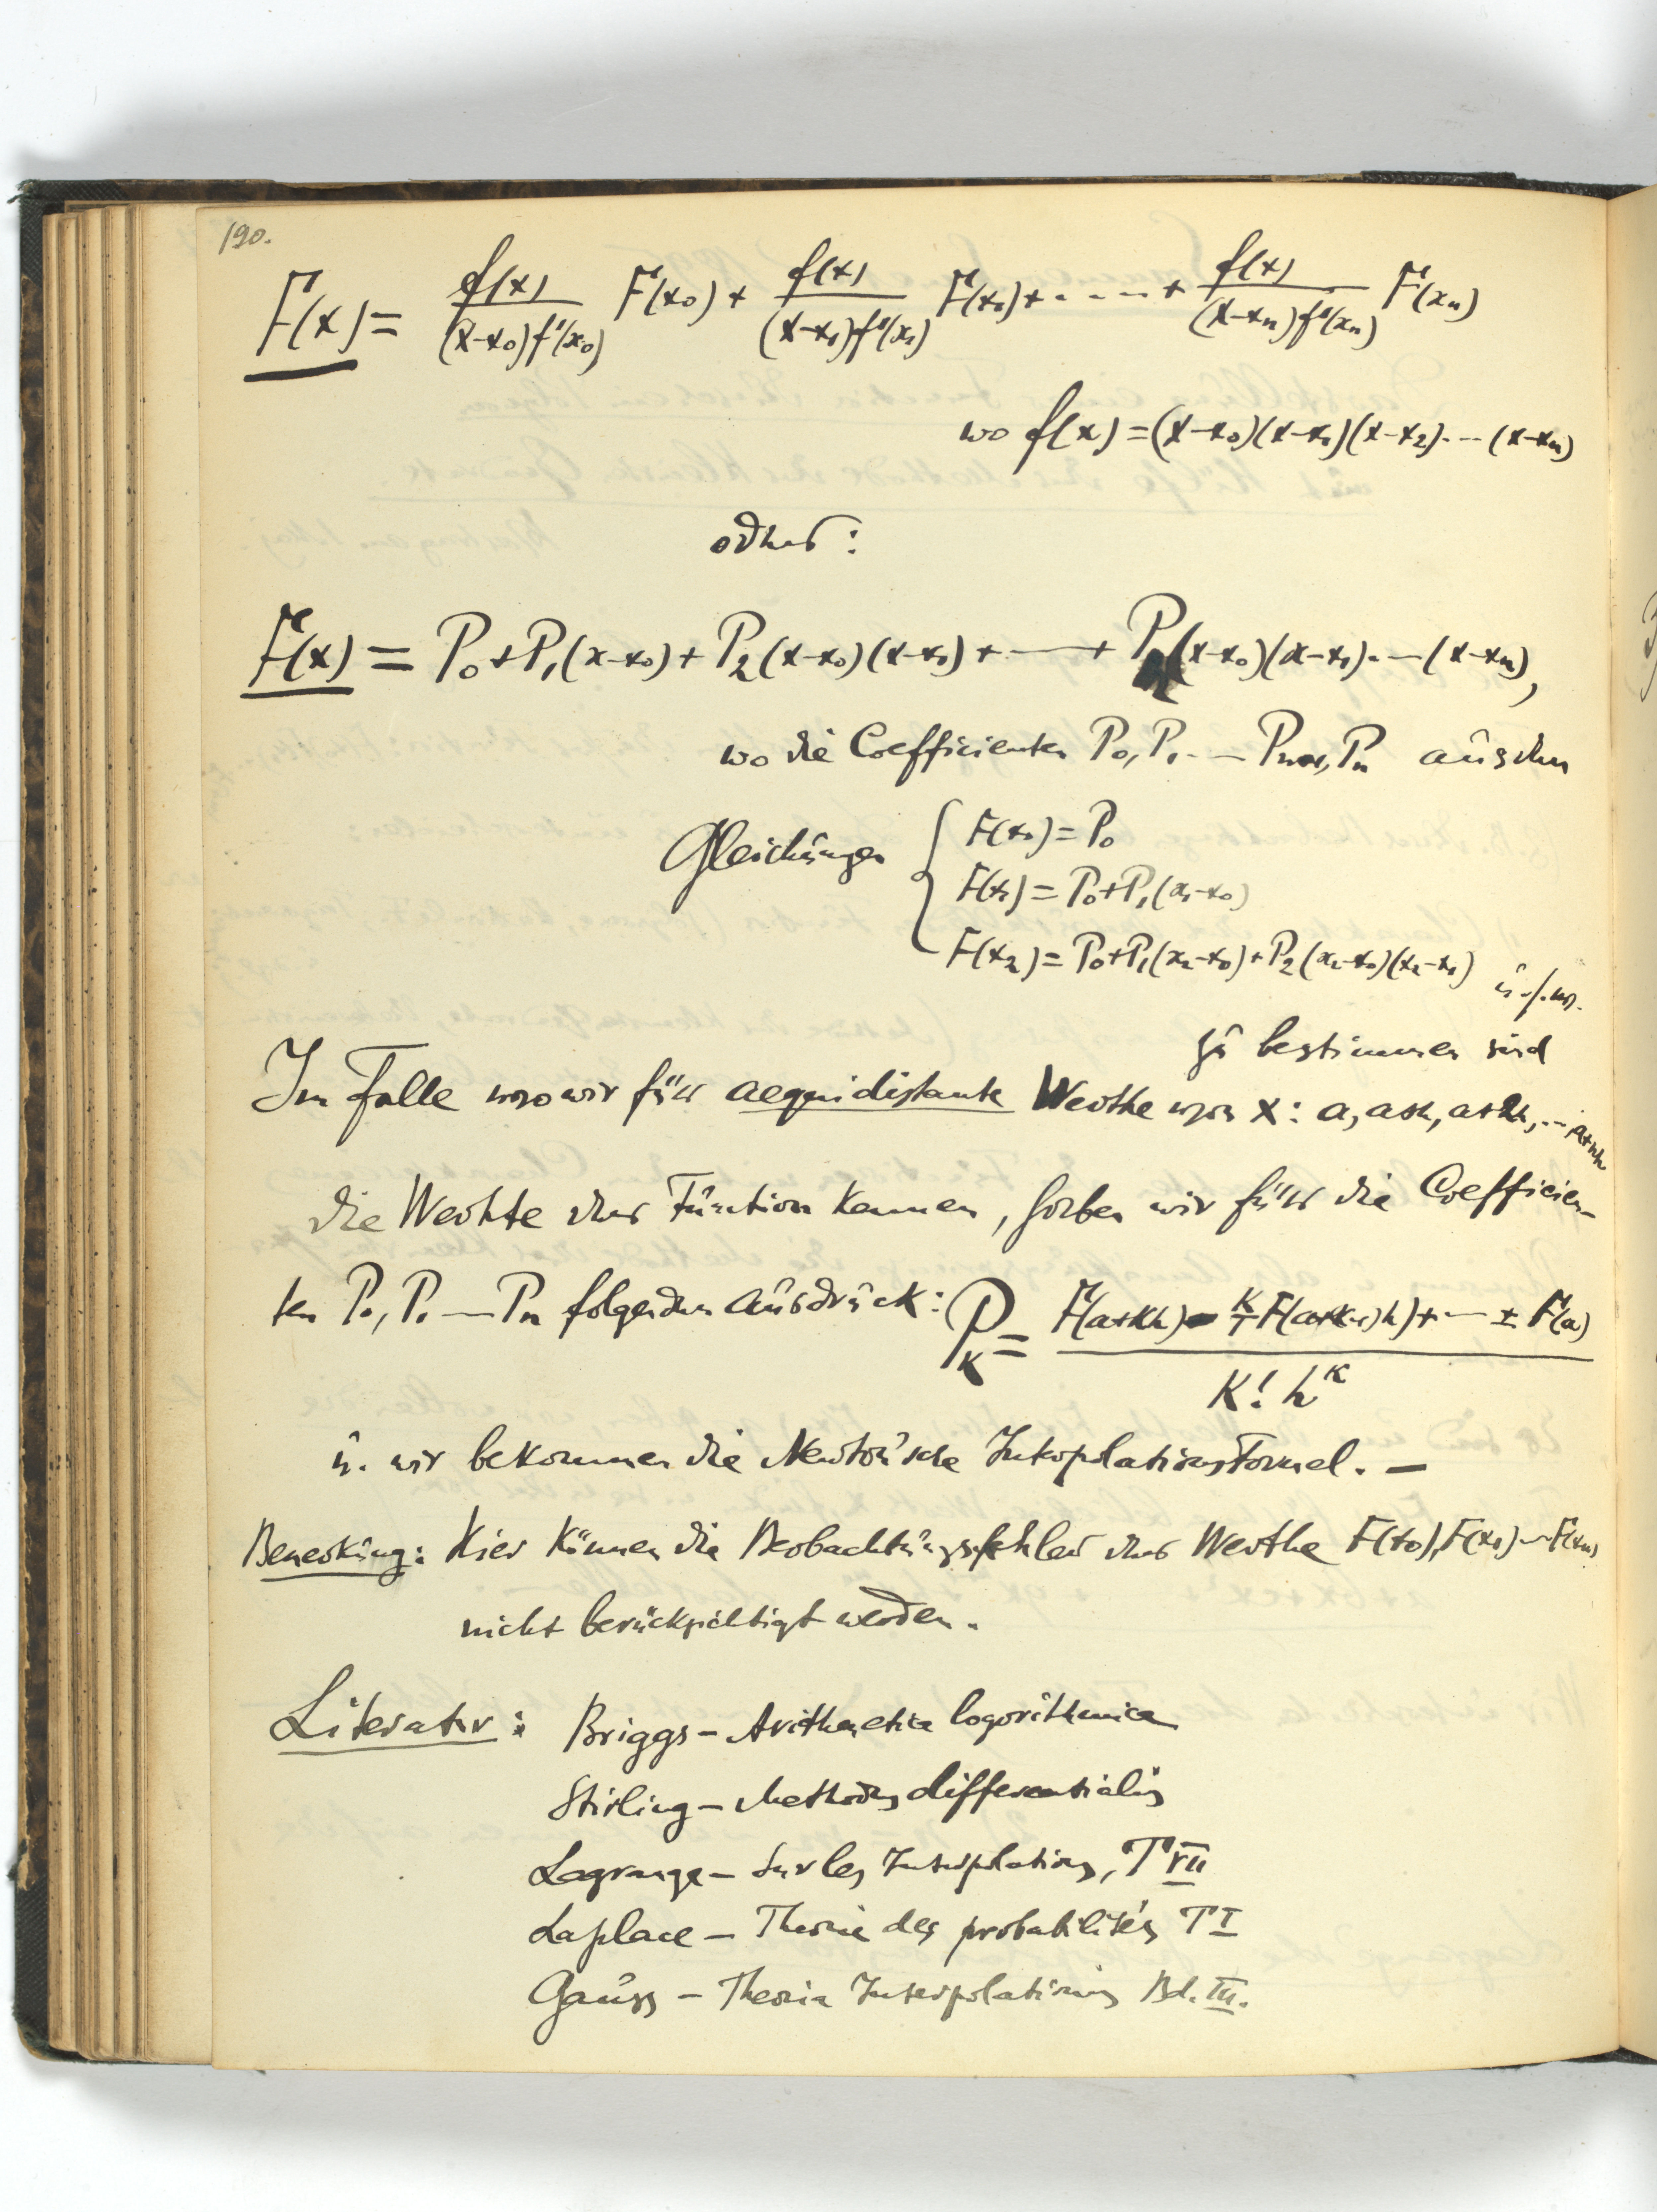 190.
F(x) = f(x)/((x-x₀)f'(x₀)) F(x₀) + f(x)/((x-x₁)f'(x₁)) F(x₁) + - - - - + f(x)/((x-xₙ)f'(xₙ)) F(xₙ)
wo f(x) = (x-x₀)(x-x₁)(x-x₂) - - - (x-xₙ)
oder :
F(x) = P₀+P₁(x-x₀) + P₂(x-x₀)(x-x₁) + - — + Pₙ(x-x₀)(x-x₁) - — (x-xₙ),
wo die Coefficienten P₀, P₁ - — Pₙ₋₁, Pₙ aus den
Gleichungen { F(x₀) = P₀
F(x₁) = P₀+P₁(x₁-x₀)
F(x₂) = P₀+P₁(x₂-x₀)+P₂(x₂-x₀)(x₂-x₁) u.s.w.
zu bestimmen sind
Im Falle wo wir für aequidistante Werthe von x: a, a+h, a+2h, - - a+nh
die Werthe der Function kennen, haben wir für die Coefficien-
ten P₀, P₁ — Pₙ folgenden Ausdruck: P_K = (F(a+Kh) - K/1 F(a+(K-1)h) + - — ± F(a)) / (K! h^K)
u. wir bekommen die Newton'sche Interpolationsformel. —
Bemerkung: Hier können die Beobachtungsfehler der Werthe F(x₀), F(x₁) — F(xₙ)
nicht berücksichtigt werden.
Literatur : Briggs – Arithmetica logarithmica
Stirling – Methodus differentialis
Lagrange – Sur les Interpolations, T VII
Laplace – Theorie des probabilités T I
Gauss – Theoria Interpolationis Bd. III.